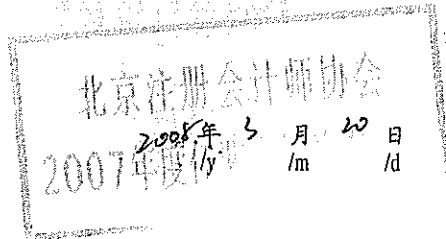 北京注册会计师协会
2008年 3 月 20 日
/y /m /d
2007年度